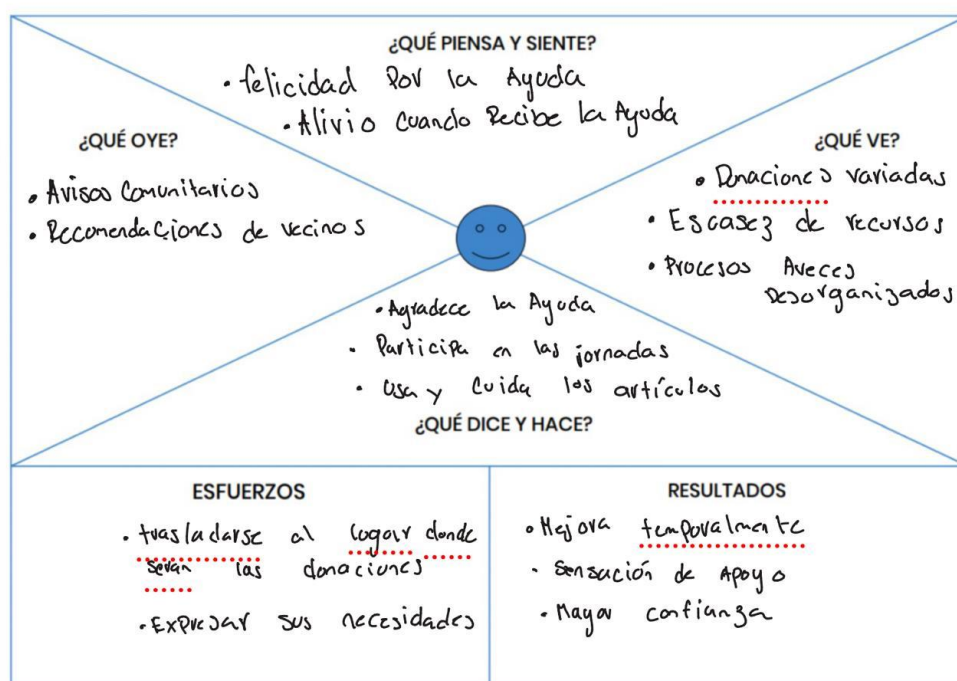 ¿QUÉ PIENSA Y SIENTE?
• felicidad por la Ayuda
• Alivio cuando Recibe la Ayuda
¿QUÉ OYE?
• Avisos Comunitarios
• Recomendaciones de vecinos
¿QUÉ VE?
• Donaciones variadas
• Escasez de recursos
• Procesos Aveces
Desorganizados
• Agradece la Ayuda
• Participa en las jornadas
• Usa y Cuida los artículos
¿QUÉ DICE Y HACE?
ESFUERZOS
• trasladarse al lugar donde
seran las donaciones
• Expresar sus necesidades
RESULTADOS
• Mejora temporalmente
• Sensación de Apoyo
• Mayor confianza